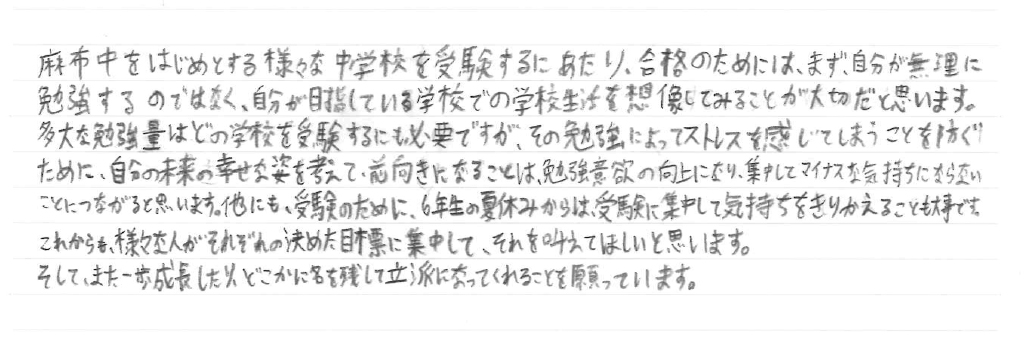 麻布中をはじめとする様々な中学校を受験するにあたり、合格のためには、まず、自分が無理に
勉強するのではなく、自分が目指している学校での学校生活を想像してみることが大切だと思います。
多大な勉強量はどの学校を受験するにも必要ですが、その勉強によってストレスを感じてしまうことを防ぐ
ために、自分の未来の幸せな姿を考えて、前向きになることは、勉強意欲の向上になり、集中してマイナスな気持ちにならない
ことにつながると思います。他にも、受験のために、6年生の夏休みからは、受験に集中して気持ちをきりかえることも大事です。
これからも、様々な人がそれぞれの決めた目標に集中して、それを叶えてほしいと思います。
そして、また一歩成長した父、どこかに名を残して立派になってくれることを願っています。